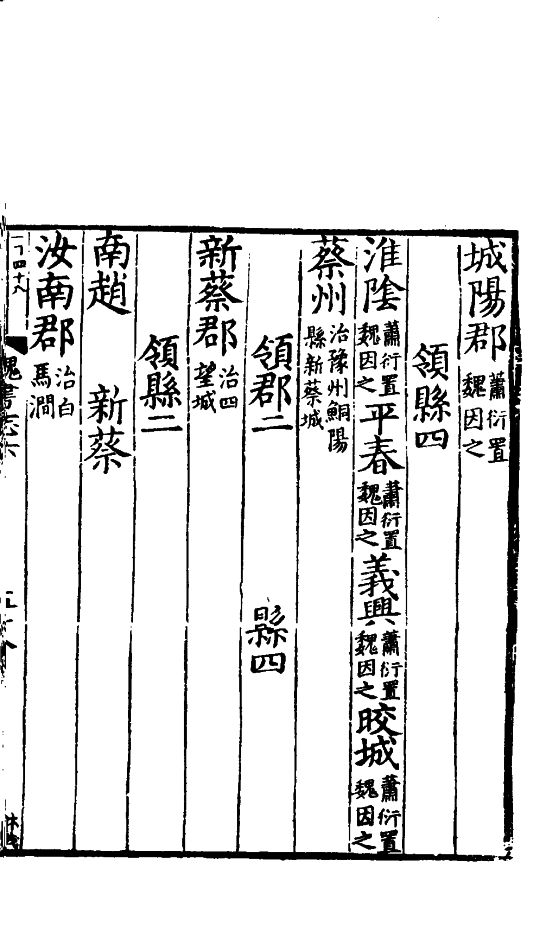 城陽郡蕭衍置魏因之
領縣四
淮陰蕭衍置魏因之平春蕭衍置魏因之義興蕭衍置魏因之晈城蕭衍置魏因之
蔡州治豫州鮦陽縣新蔡城
領郡二 縣四
新蔡郡治四望城
領縣二
南趙 新蔡
汝南郡治白馬澗
魏書志